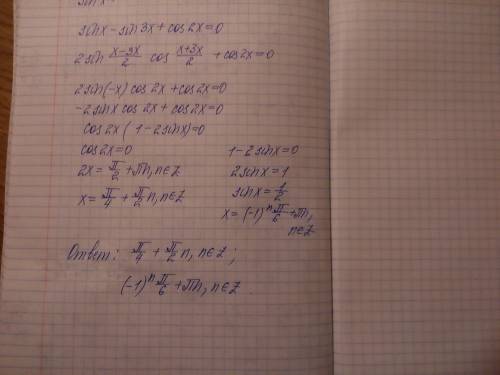 sin x - sin 3x + cos 2x = 0
2 sin (x-3x)/2 cos (x+3x)/2 + cos 2x = 0
2 sin(-x) cos 2x + cos 2x = 0
-2 sin x cos 2x + cos 2x = 0
cos 2x (1 - 2 sin x) = 0
cos 2x = 0
2x = π/2 + πn, n ∈ Z
x = π/4 + π/2 n, n ∈ Z
1 - 2 sin x = 0
2 sin x = 1
sin x = 1/2
x = (-1)^n π/6 + πn,
n ∈ Z
Ответ: π/4 + π/2 n, n ∈ Z;
(-1)^n π/6 + πn, n ∈ Z